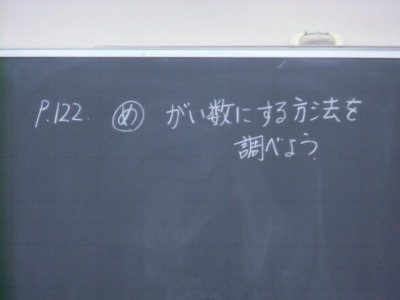 P.122. め がい数にする方法を
調べよう